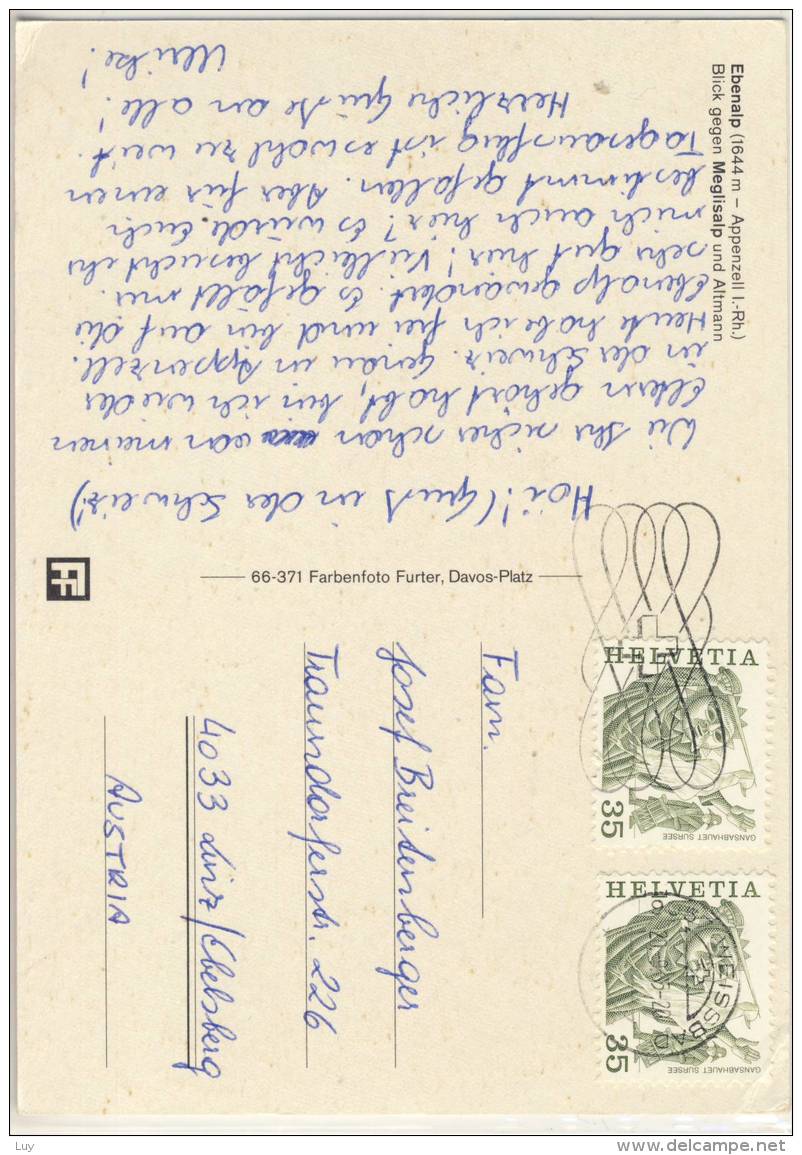 Ebenalp (1644 m – Appenzell I.-Rh.)
Blick gegen Meglisalp und Altmann
Hoi! (Gruß in der Schweiz!)
Wie Ihr sicher schon von meinen
Eltern gehört habt, bin ich wieder
in der Schweiz. Genau in Appenzell.
Heute habe ich frei und bin auf die
Ebenalp gewandert. Es gefällt mir
sehr gut hier! Vielleicht besucht ihr
mich auch hier? Es würde Euch
bestimmt gefallen. Aber für einen
Tagesausflug ist es wohl zu weit.
Herzliche Grüße an alle!
Ulrike!
66-371 Farbenfoto Furter, Davos-Platz
FF
Fam.
Josef Breitenberger
Traundorferstr. 226
4033 Linz/Ebelsberg
AUSTRIA
HELVETIA
35
GANSABHAUET SURSEE
HELVETIA
35
GANSABHAUET SURSEE
WEISSBAD
Luy
delcampe.net